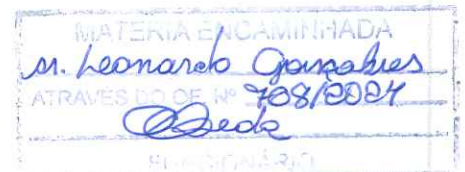 MATÉRIA ENCAMINHADA
Sr. Leonardo Gonçalves
ATRAVÉS DO OF. Nº 708/2024
FUNCIONÁRIO